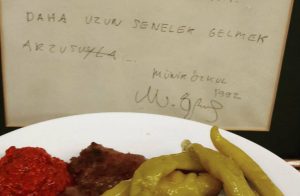 DAHA UZUN SENELER GELMEK
ARZUSUYLA...
MÜNİR ÖZKUL
1992